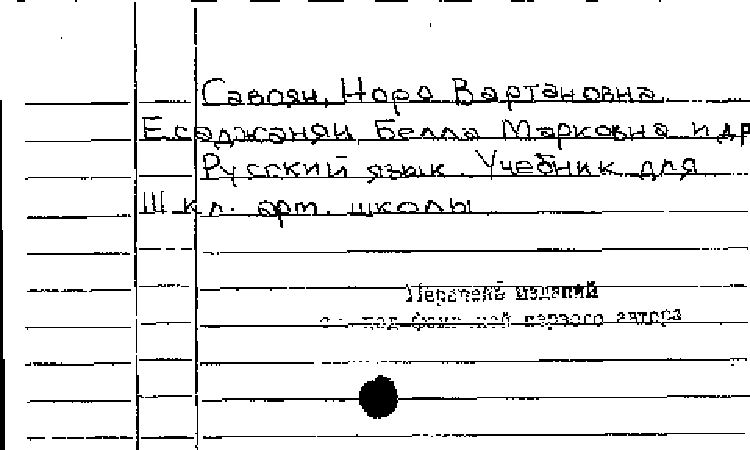 Савоян, Нора Вартановна
Есаджанян, Белла Марковна и др
Русский язык. Учебник для
III кл. арм. школы
Перечень изданий
см. под фамилией первого автора